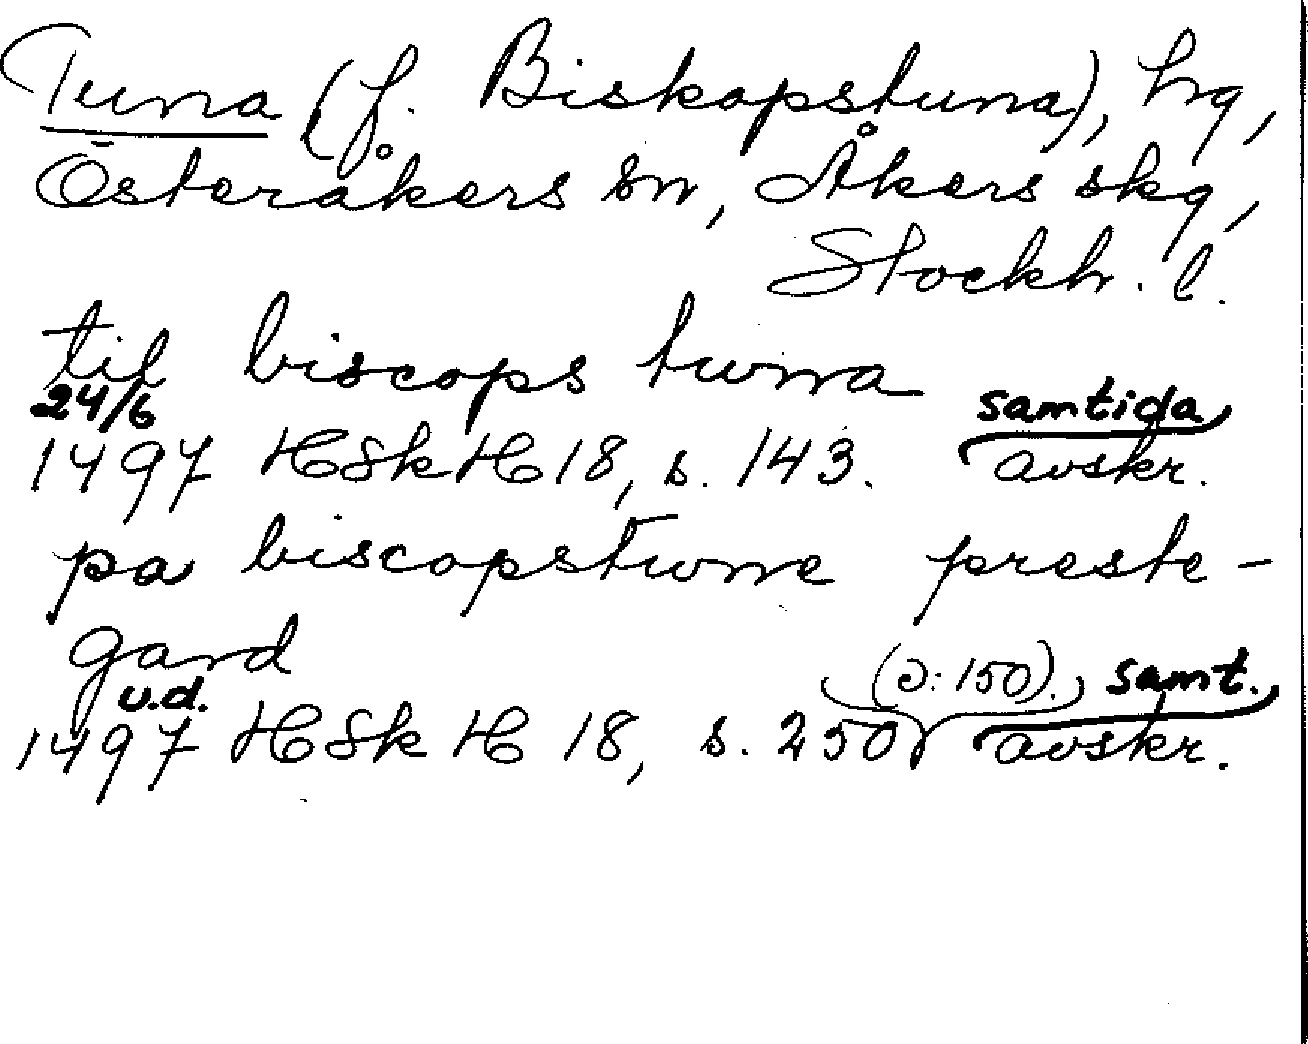 Tuna (f. Biskopstuna), hg,
Österåkers sn, Åkers skg,
Stockh. l.
til biscops twna
24/6 samtida
1497 HSkH 18, s. 143. avskr.
pa biscopstwne preste-
gard
u.d. (ɔ: 150). samt.
1497 HSkH 18, s. 250 avskr.